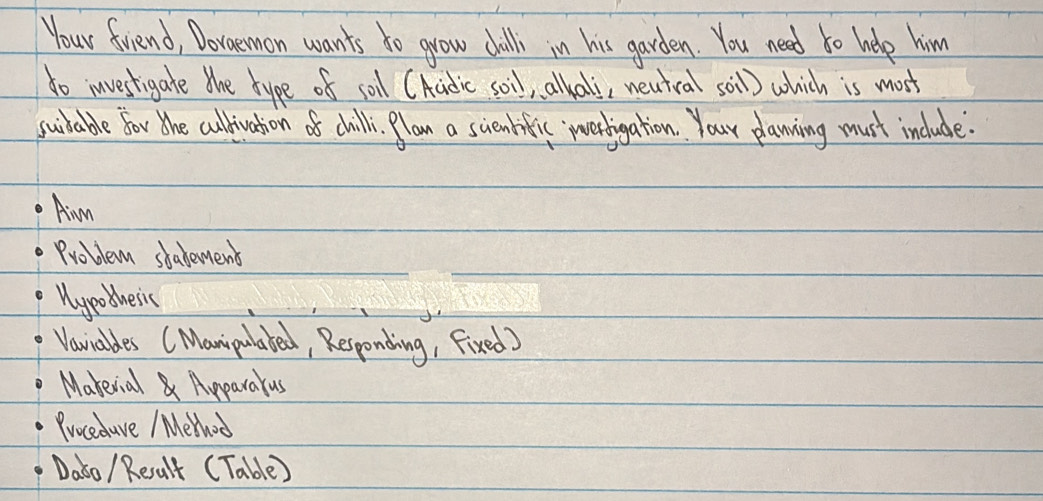 Your friend, Doraemon wants to grow chilli in his garden. You need to help him
to investigate the type of soil (Acidic soil, alkali, neutral soil) which is most
suitable for the cultivation of chilli. Plan a scientific investigation. Your planning must include:
• Aim
• Problem statement
• Hypothesis
• Variables (Manipulated, Responding, Fixed)
• Material & Apparatus
• Procedure / Method
• Data / Result (Table)